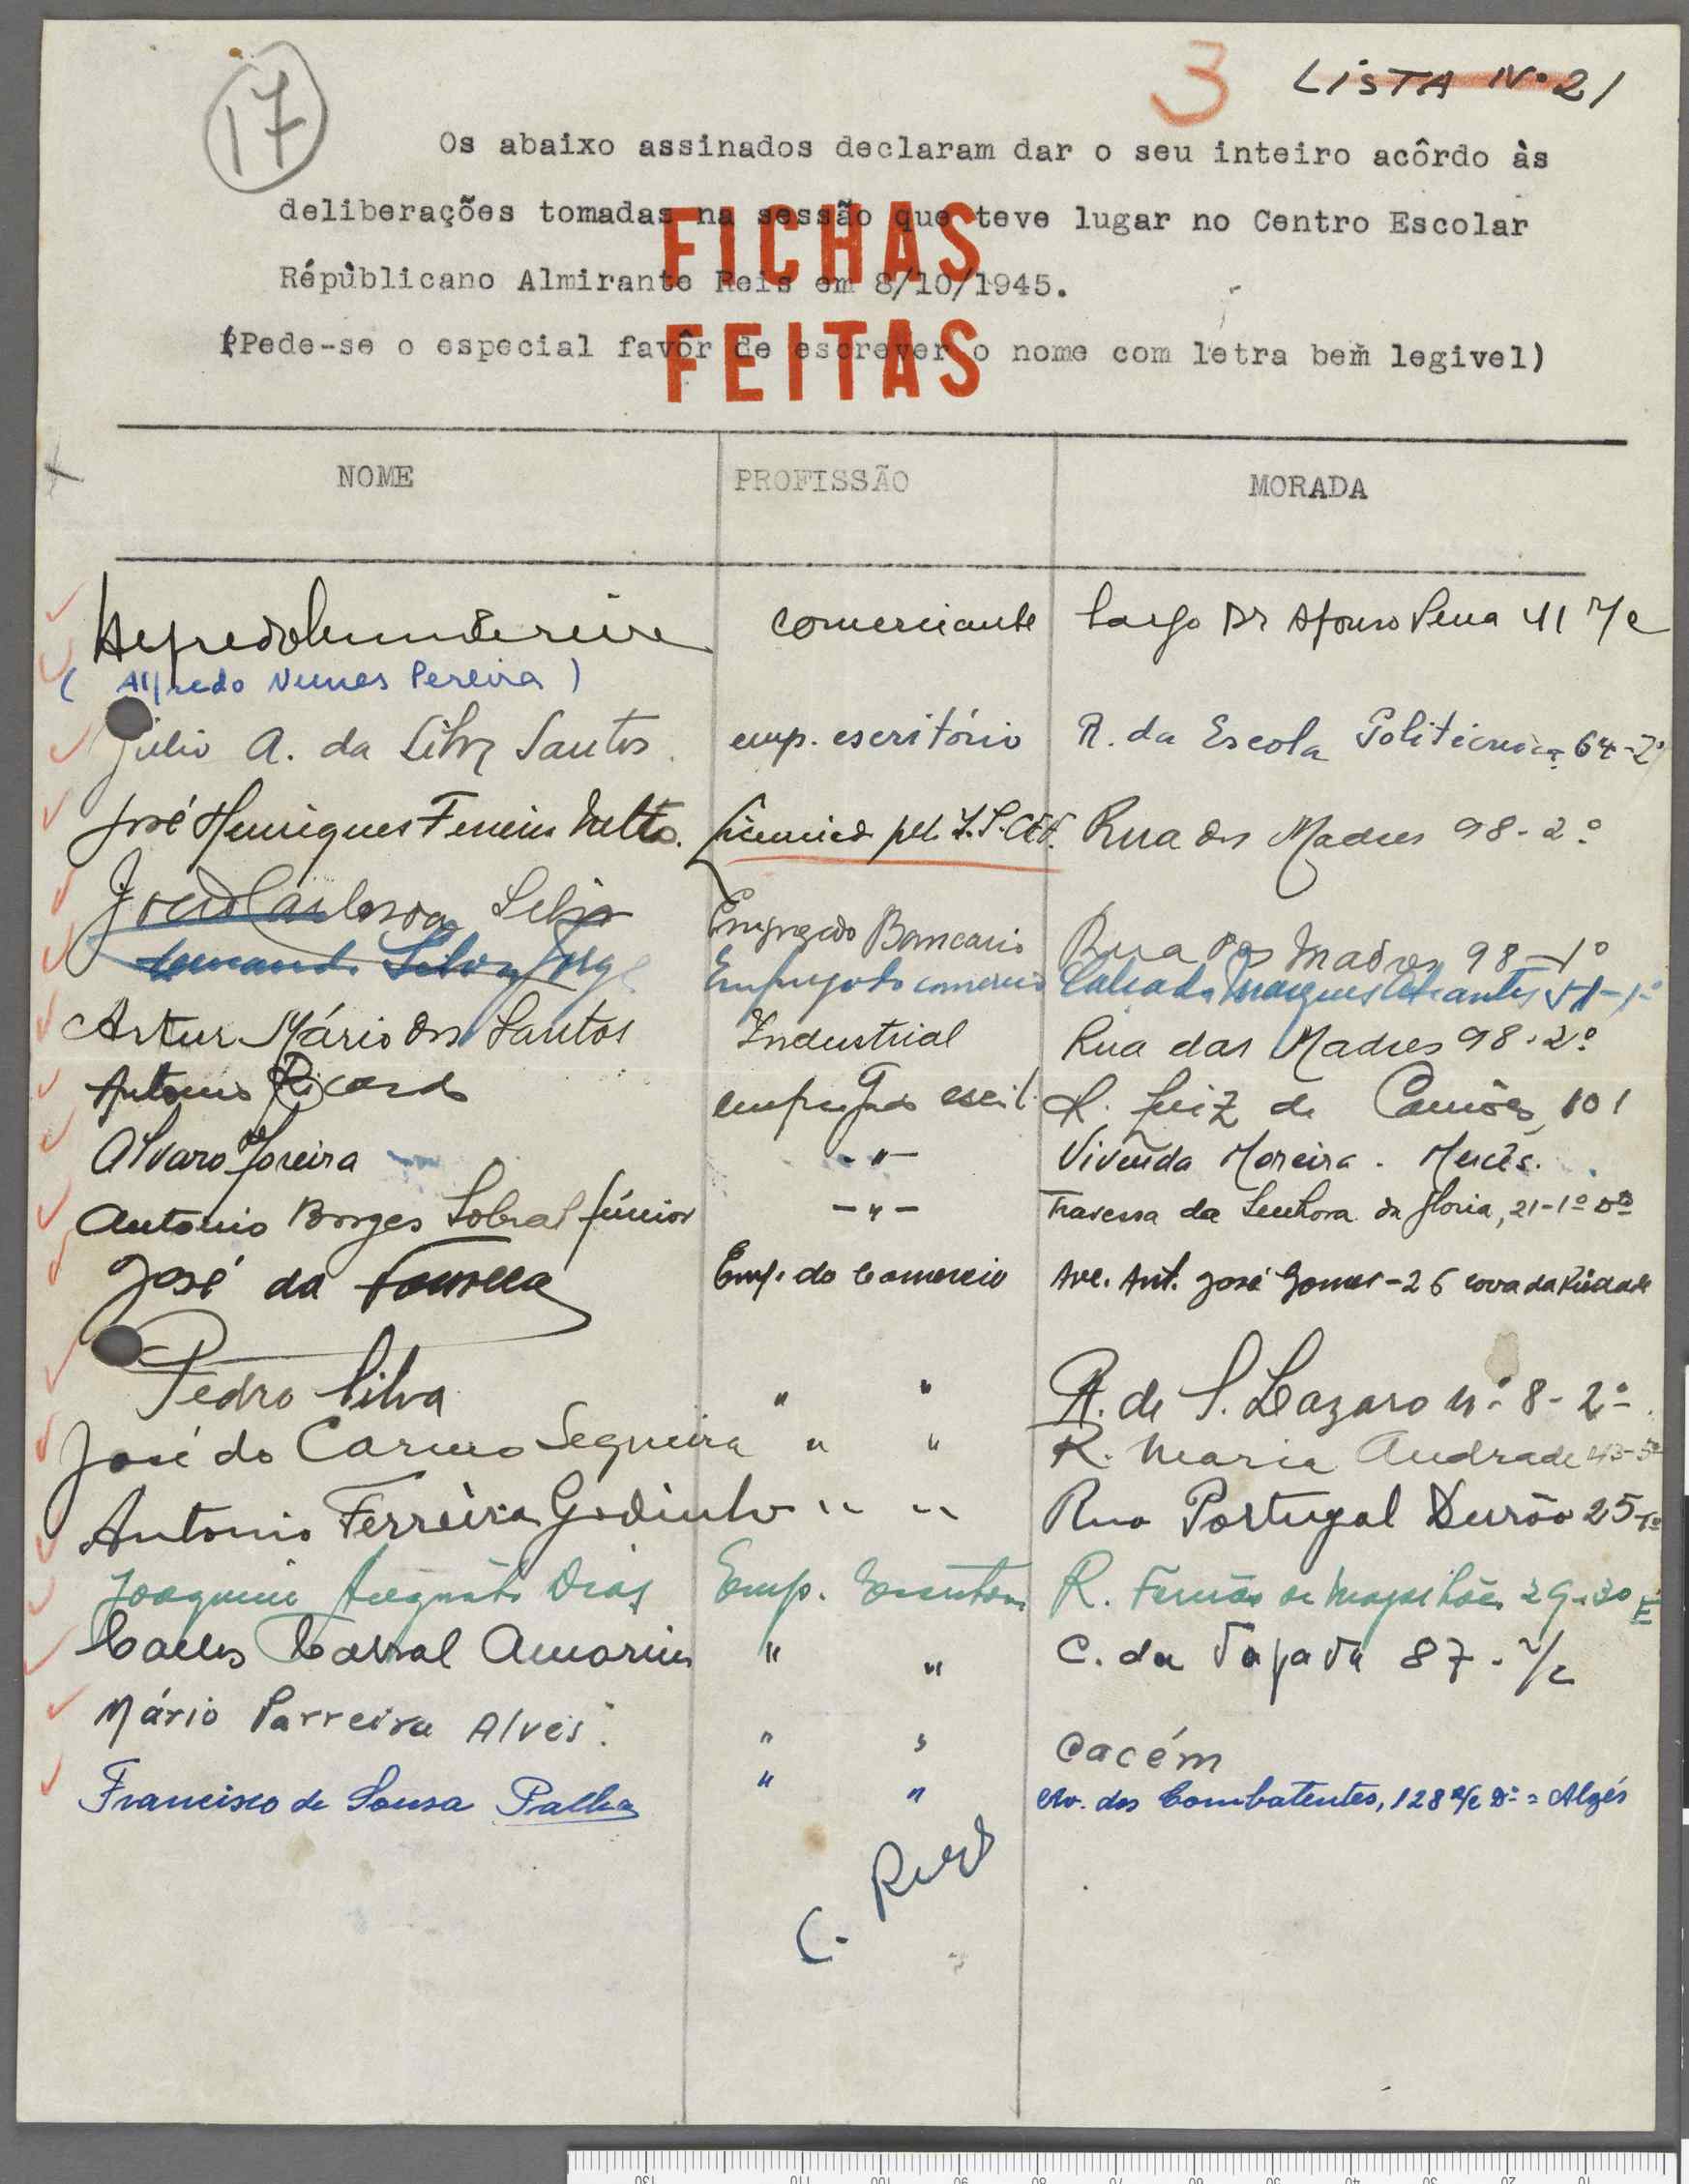 17
3
LISTA Nº 21
Os abaixo assinados declaram dar o seu inteiro acôrdo às
deliberações tomadas na sessão que teve lugar no Centro Escolar
Républicano Almirante Reis em 8/10/1945.
(Pede-se o especial favôr de escrever o nome com letra bem legivel)
FICHAS
FEITAS
NOME PROFISSÃO MORADA
comerciante Largo Dr Afonso Pena 41 r/c
(Alfredo Nunes Pereira)
Júlio A. da Silva Santos. emp. escritório R. da Escola Politécnica 64-2º
José Henriques Ferreira Netto. Licenciado pelo I.S.C.E.F. Rua das Madres 98-2º
da Silva Empregado Bancario Rua das Madres 98-1º
Fernando Silva Jorge Empregado comercio Calçada Marquez Abrantes
Artur Mário dos Santos Industrial Rua das Madres 98-2º
Antonio Ricardo empregado escrit. R. Luiz de Camões, 101
Alvaro Moreira -"- Vivenda Moreira. Mercês.
Antonio Borges Sobral Júnior -"- Travessa da Senhora da Gloria, 21-1º Dtº
José da Fonseca Emp. do Comercio Ave. Ant. José Gomes-26 Cova da Piedade
Pedro Silva " " R. de S. Lazaro nº 8-2º
José do Carmo Sequeira " " R. Maria Andrade 43-5º
Antonio Ferreira Godinho " " Rua Portugal Durão 25-1º
Joaquim Augusto Dias Emp. Escritorio R. Fernão de Magalhães 29-3º E
Carlos Cabral Amorim " " C. da Tapada 87-r/c
Mário Parreira Alves. " " Cacém
Francisco de Sousa Palha " " Av. dos Combatentes, 128 R/c Dº = Algés